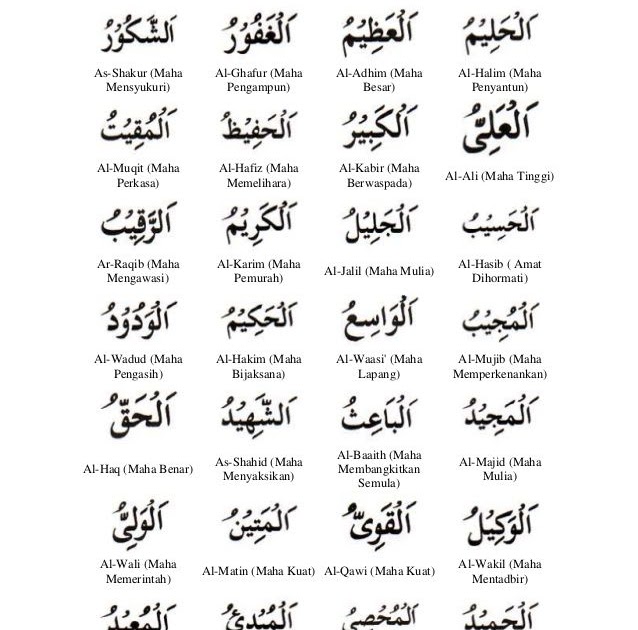 اَلْحَلِيْمُ
Al-Halim (Maha
Penyantun)
اَلْعَظِيْمُ
Al-Adhim (Maha
Besar)
اَلْغَفُوْرُ
Al-Ghafur (Maha
Pengampun)
اَلشَّكُوْرُ
As-Shakur (Maha
Mensyukuri)
اَلْعَلِىُّ
Al-Ali (Maha Tinggi)
اَلْكَبِيْرُ
Al-Kabir (Maha
Berwaspada)
اَلْحَفِيْظُ
Al-Hafiz (Maha
Memelihara)
اَلْمُقِيْتُ
Al-Muqit (Maha
Perkasa)
اَلْحَسِيْبُ
Al-Hasib ( Amat
Dihormati)
اَلْجَلِيْلُ
Al-Jalil (Maha Mulia)
اَلْكَرِيْمُ
Al-Karim (Maha
Pemurah)
اَلرَّقِيْبُ
Ar-Raqib (Maha
Mengawasi)
اَلْمُجِيْبُ
Al-Mujib (Maha
Memperkenankan)
اَلْوَاسِعُ
Al-Waasi' (Maha
Lapang)
اَلْحَكِيْمُ
Al-Hakim (Maha
Bijaksana)
اَلْوَدُوْدُ
Al-Wadud (Maha
Pengasih)
اَلْمَجِيْدُ
Al-Majid (Maha
Mulia)
اَلْبَاعِثُ
Al-Baaith (Maha
Membangkitkan
Semula)
اَلشَّهِيْدُ
As-Shahid (Maha
Menyaksikan)
اَلْحَقُّ
Al-Haq (Maha Benar)
اَلْوَكِيْلُ
Al-Wakil (Maha
Mentadbir)
اَلْقَوِىُّ
Al-Qawi (Maha Kuat)
اَلْمَتِيْنُ
Al-Matin (Maha Kuat)
اَلْوَلِىُّ
Al-Wali (Maha
Memerintah)
اَلْحَمِيْدُ
اَلْمُحْصِىُ
اَلْمُبْدِئُ
اَلْمُعِيْدُ